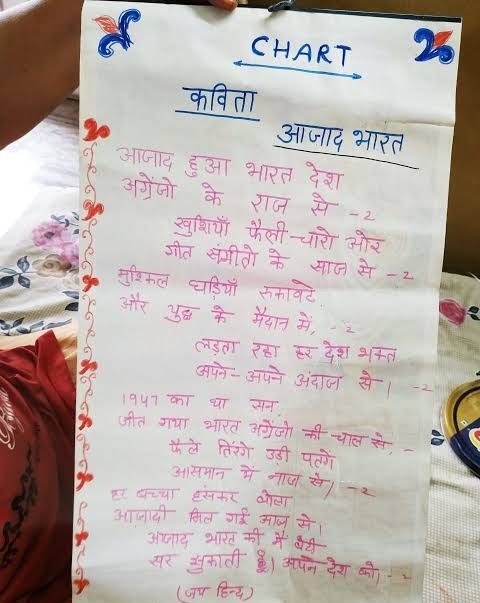 CHART
कविता
आजाद भारत
आजाद हुआ भारत देश
अग्रेंजो के राज से -2
खुशियाँ फैली-चारो ओर
गीत संगीतो के साज से -2
मुश्किल घड़ियाँ रूकावटे
और युद्ध के मैदान में, -2
लड़ता रहा हर देश भक्त
अपने-अपने अंदाज से। -2
1947 का था सन,
जीत गया भारत अग्रेंजो की चाल से, -
फैले तिरंगे उड़ी पतगें
आसमान में नाज से। -2
हर बच्चा हसकर बोला
आजादी मिल गई आज से।
आजाद भारत की मैं बेटी
सर झुकाती हूँ। अपने देश को। -2
(जय हिन्द)